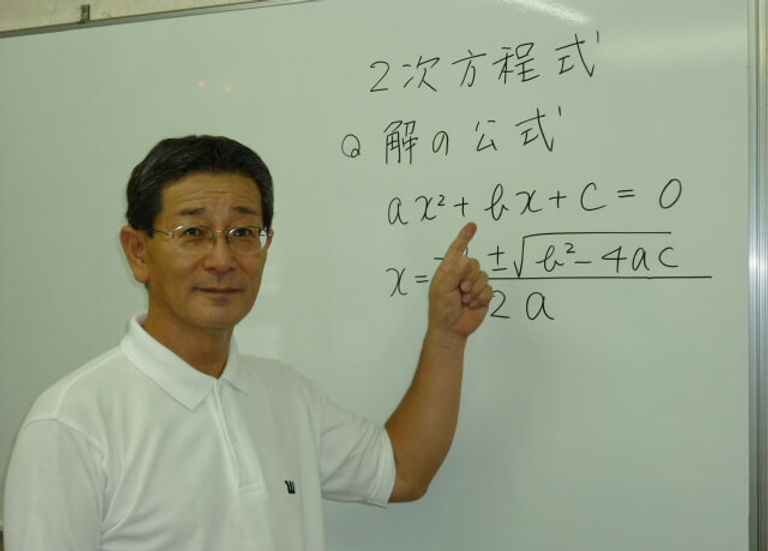 2次方程式
Q 解の公式
ax²+bx+c=0
x=± √b²-4ac
2a
W